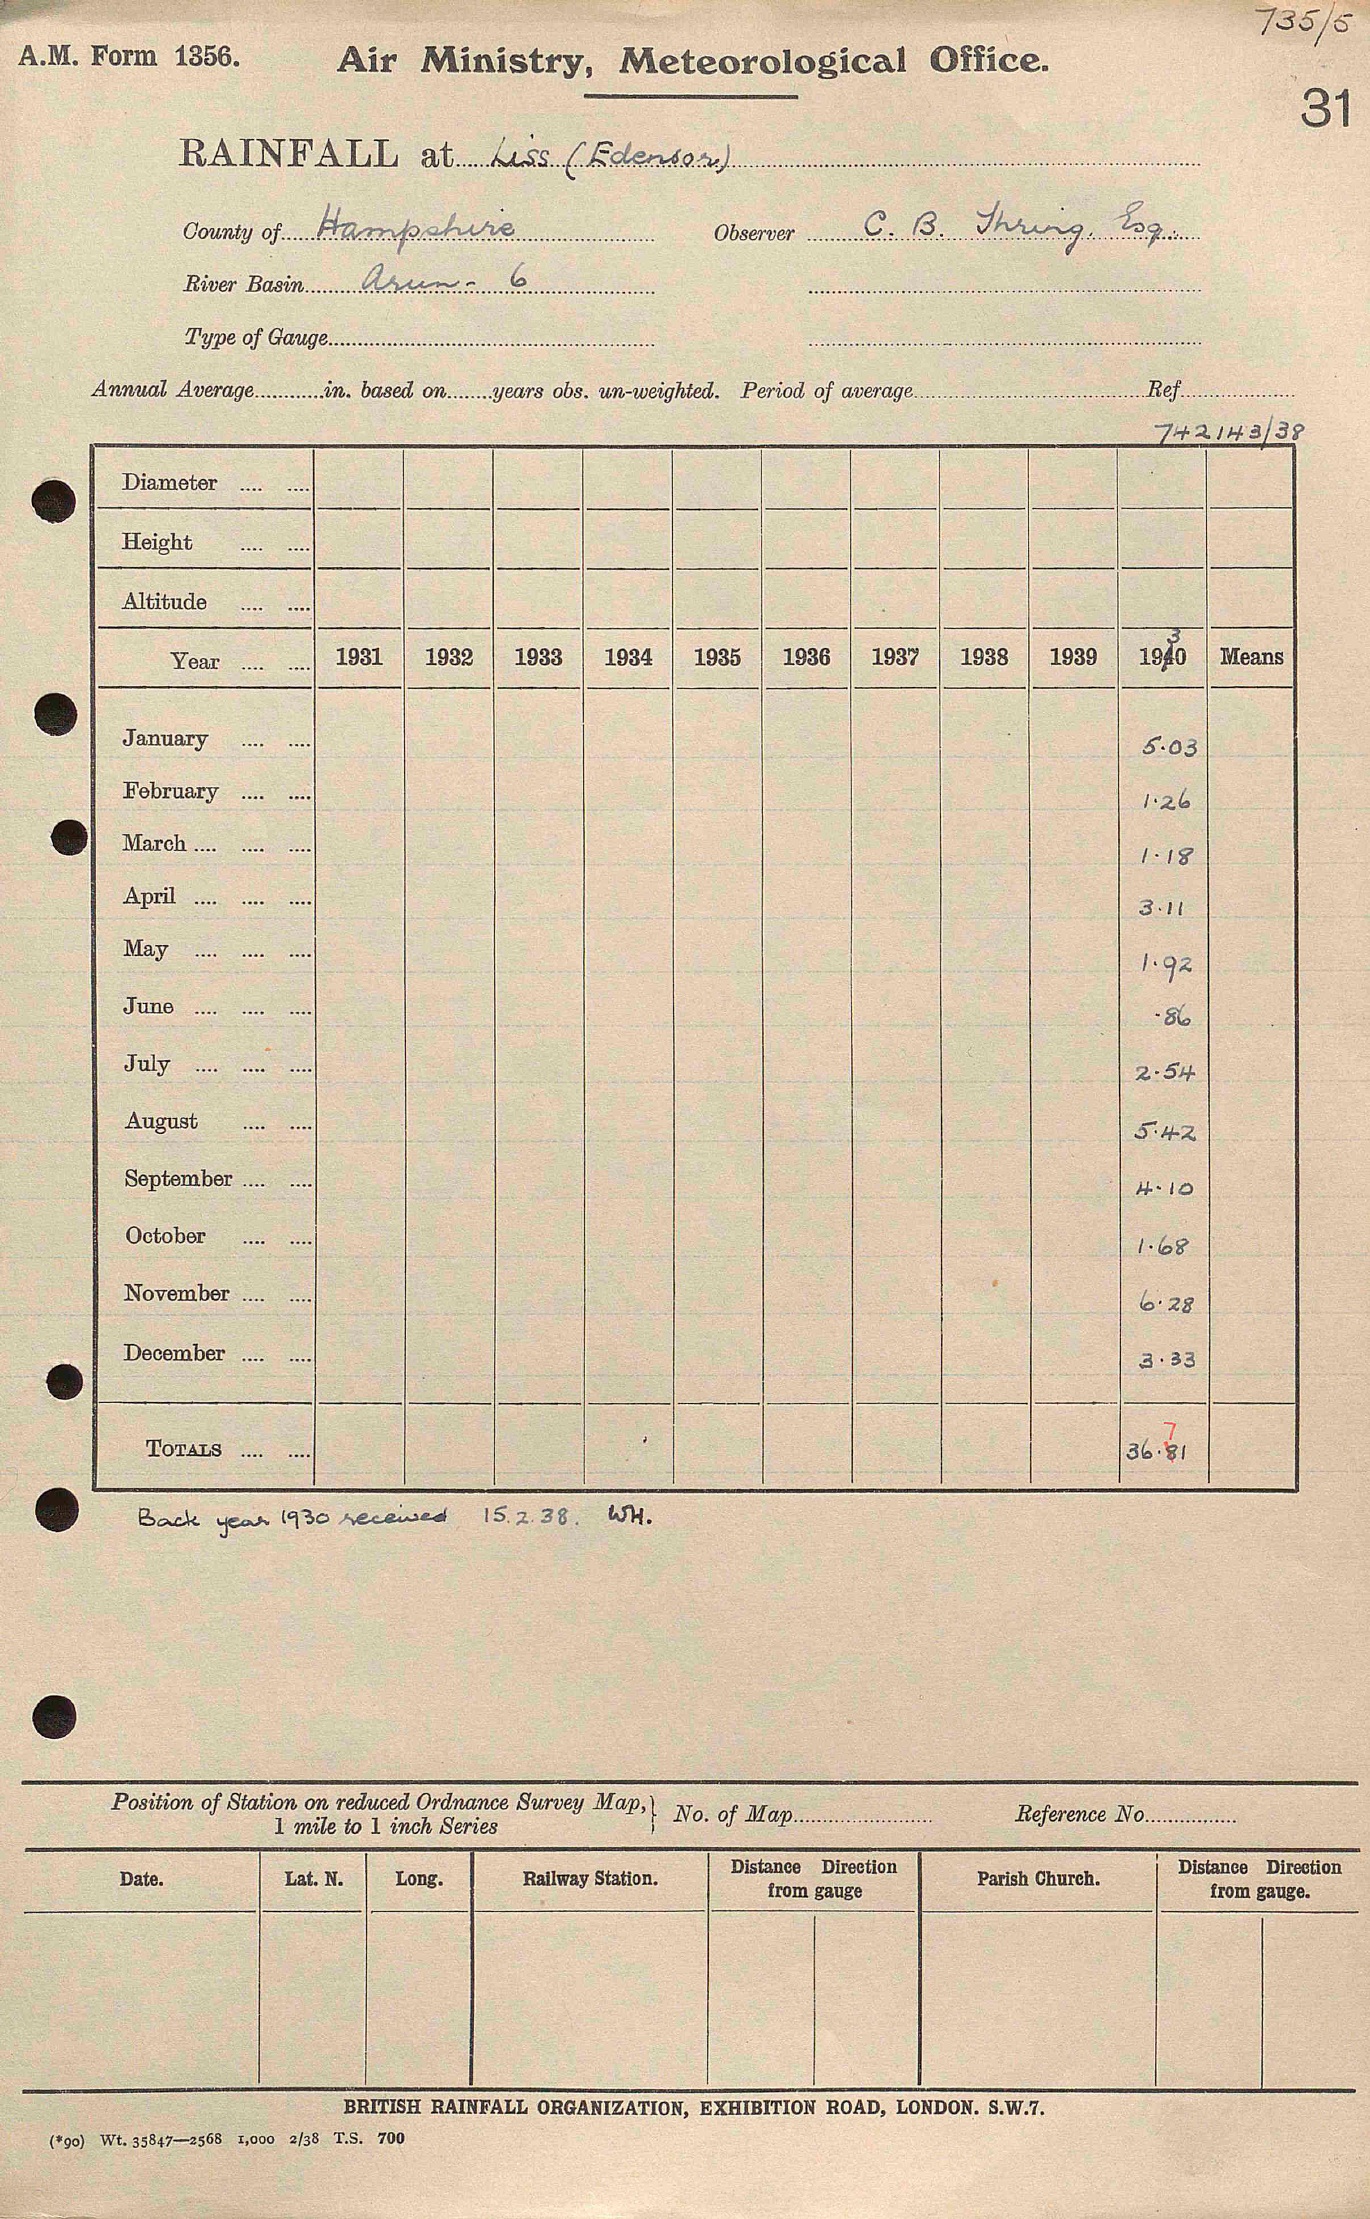 735/5
A.M. Form 1356. Air Ministry, Meteorological Office.
31
RAINFALL at Liss (Edensor)
County of Hampshire Observer C. B. Thring. Esq.
River Basin Arun - 6
Type of Gauge
Annual Average in. based on years obs. un-weighted. Period of average Ref
742143/38
Diameter
Height
Altitude
3
Year 1931 1932 1933 1934 1935 1936 1937 1938 1939 1940 Means
January 5.03
February 1.26
March 1.18
April 3.11
May 1.92
June .86
July 2.54
August 5.42
September 4.10
October 1.68
November 6.28
December 3.33
7
TOTALS 36.81
Back year 1930 received 15.2.38. WH.
Position of Station on reduced Ordnance Survey Map, } No. of Map Reference No.
1 mile to 1 inch Series
Date. Lat. N. Long. Railway Station. Distance Direction Parish Church. Distance Direction
from gauge from gauge.
BRITISH RAINFALL ORGANIZATION, EXHIBITION ROAD, LONDON. S.W.7.
(*90) Wt. 35847—2568 1,000 2/38 T.S. 700